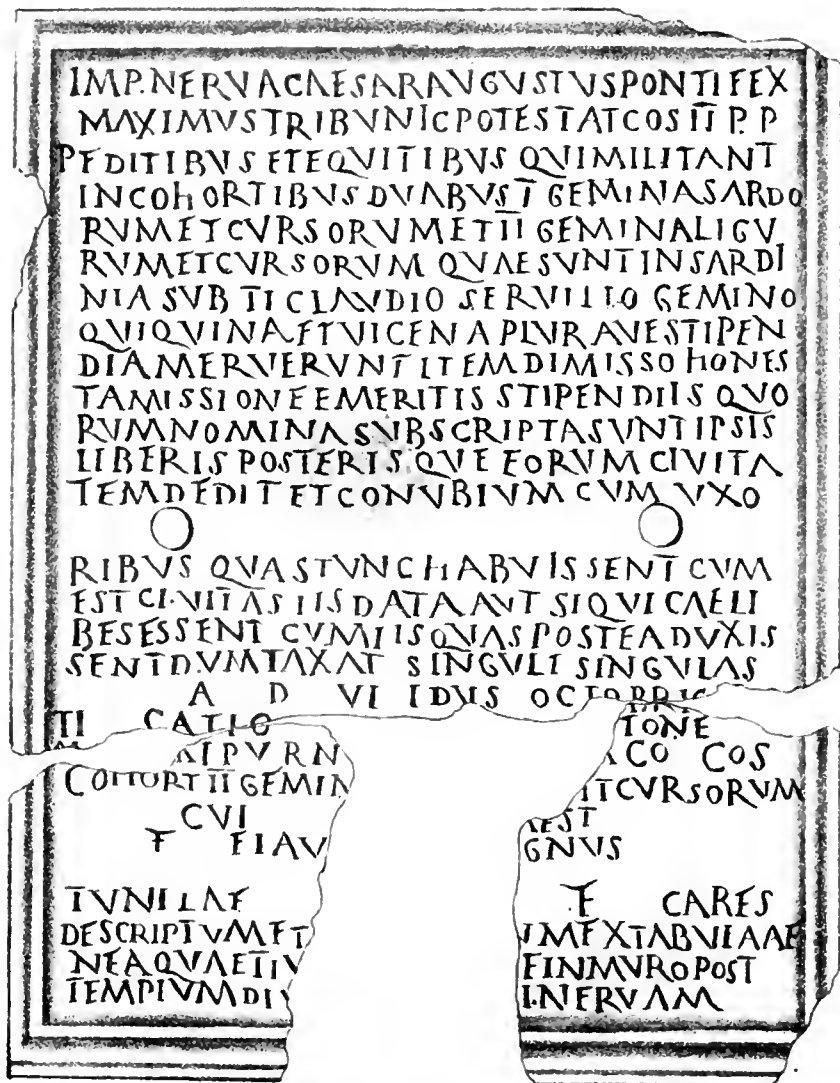 IMP·NERVACAESARAVGVSTVSPONTIFEX
MAXIMVSTRIBVNICPOTESTATCOSII P·P
PEDITIBVS ETEQVITIBVS QVIMILITANT
INCOhORTIBVSDVABVS I GEMINASARDO
RVMETCVRSORVMETII GEMINALIGV
RVMETCVRSORVM QVAESVNTINSARDI
NIA SVB TI CLAVDIO SERVILIO GEMINO
QVIQVINAETVICENA PLVRAVESTIPEN
DIAMERVERVNTITEMDIMISSOhONES
TAMISSIONEEMERITIS STIPENDIIS QVO
RVMNOMINASVBSCRIPTASVNTIPSIS
LIBERISPOSTERISQVE EORVMCIVITA
TEMDEDITETCONVBIVM CVM VXO
RIBVS QVASTVNChABVISSENT CVM
EST CI·VITAS IISDATAAVT SIQVICAELI
BESESSENT CVMIISQVASPOSTEADVXIS
SENTDVMTAXAT SINGVLI SINGVLAS
A D VI IDVS OCTOBRIS
TI CATIO TONE
RIPVRN ACO COS
COHORT II GEMIN ITCVRSORVM
CVI AEST
T FLAV GNVS
TVNILAE F CARES
DESCRIPTVMET VMEXTABVLAAE
NEAQVAETIV EINMVROPOST
TEMPLVMDIV I·NERVAM